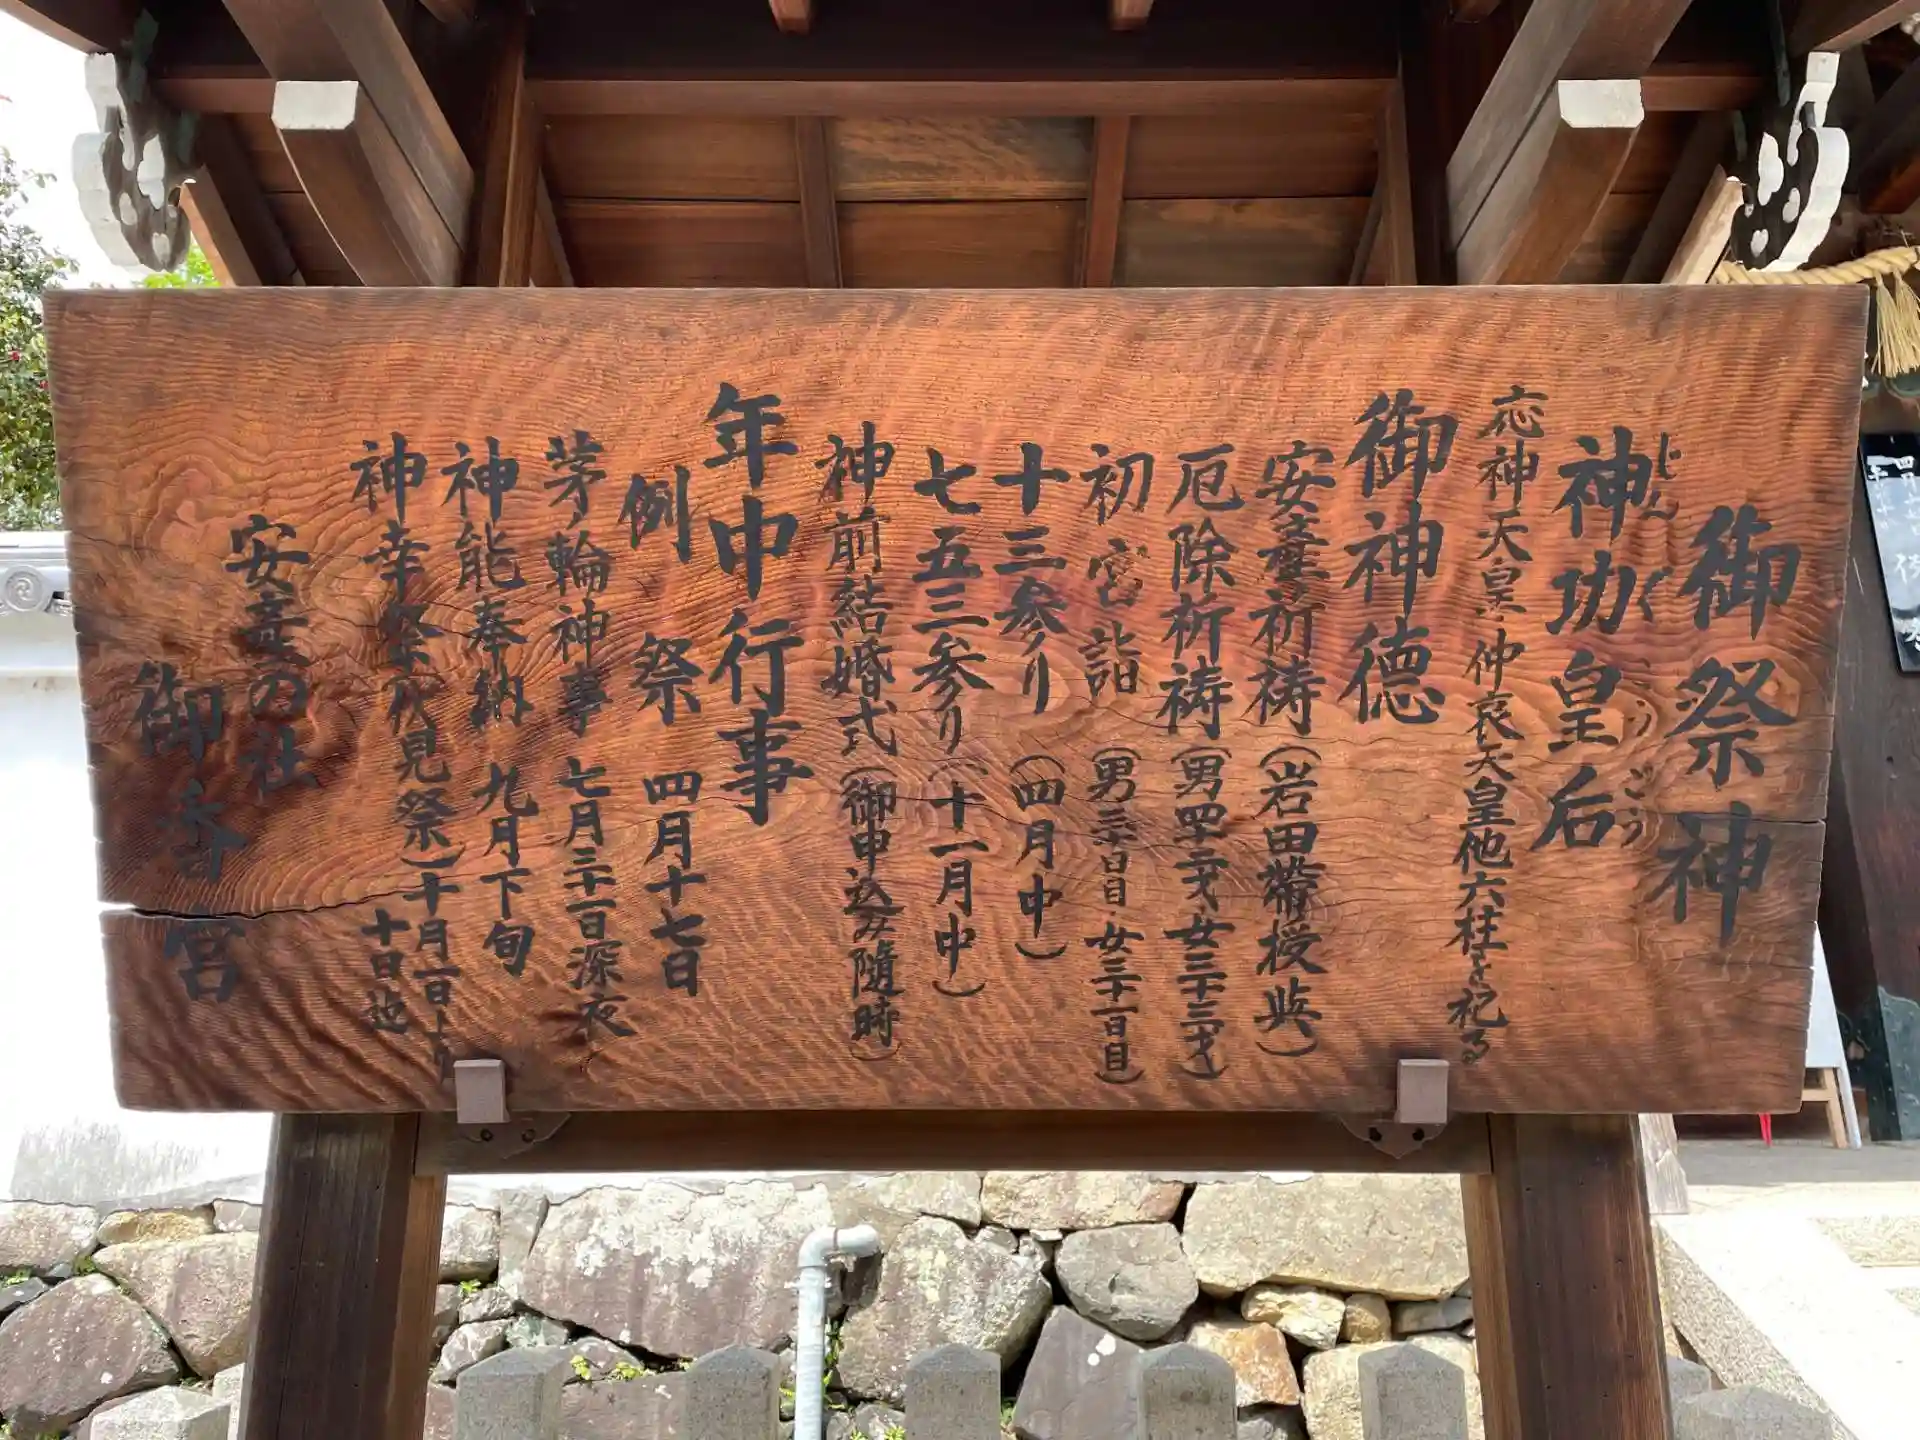 御祭神
神功皇后
じんぐうこうごう
応神天皇・仲哀天皇他六柱を祀る
御神徳
安産祈祷（岩田帯授与）
厄除祈祷（男四十二才・女三十三才）
初宮詣（男三十日目・女三十一日目）
十三参り（四月中）
七五三参り（十一月中）
神前結婚式（御申込み随時）
年中行事
例祭 四月十七日
茅ノ輪神事 七月三十一日深夜
神能奉納 九月下旬
神幸祭（伏見祭）十月一日より
十日迄
安産の社
御香宮